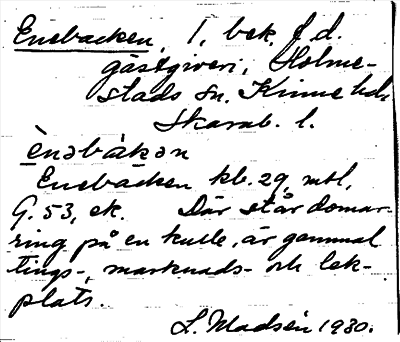 Enebacken, 1, bek. f.d.
gästgiveri, Holme-
stads sn. Kinne hd.
Skarab. l.
ènəbàkən
Enebacken kb. 29, mtl,
G. 53, ek. Där står domar-
ring på en kulle, är gammal
tings-, marknads- och lek-
plats.
L. Madsén 1930.